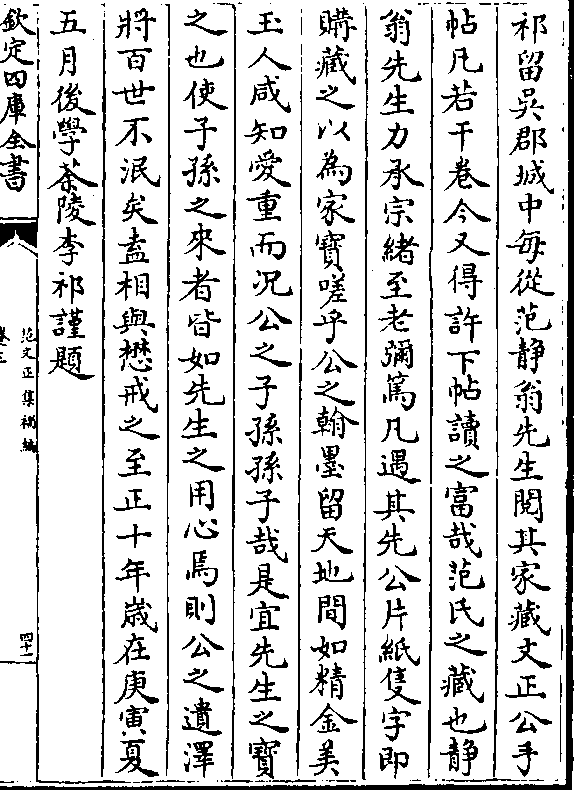 祁留吳郡城中每從范靜翁先生閱其家藏文正公手
帖凡若干卷今又得許下帖讀之富哉范氏之藏也靜
翁先生力承宗緒至老彌篤凡遇其先公片紙隻字即
購藏之以為家寳嗟乎公之翰墨留天地間如精金美
玉人咸知愛重而况公之子孫孫子哉是宜先生之寳
之也使子孫之來者皆如先生之用心焉則公之遺澤
將百世不泯矣盍相與懋戒之至正十年嵗在庚寅夏
五月後學茶陵李祁謹題
欽定四庫全書
范文正集補編
卷三
四十一